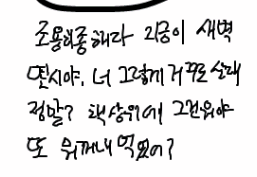 조용히좀해라 지금이 새벽
몇시야. 너 그렇게 거꾸로 살래
정말? 책상위에 그건뭐야
또 뭐꺼내먹었어?